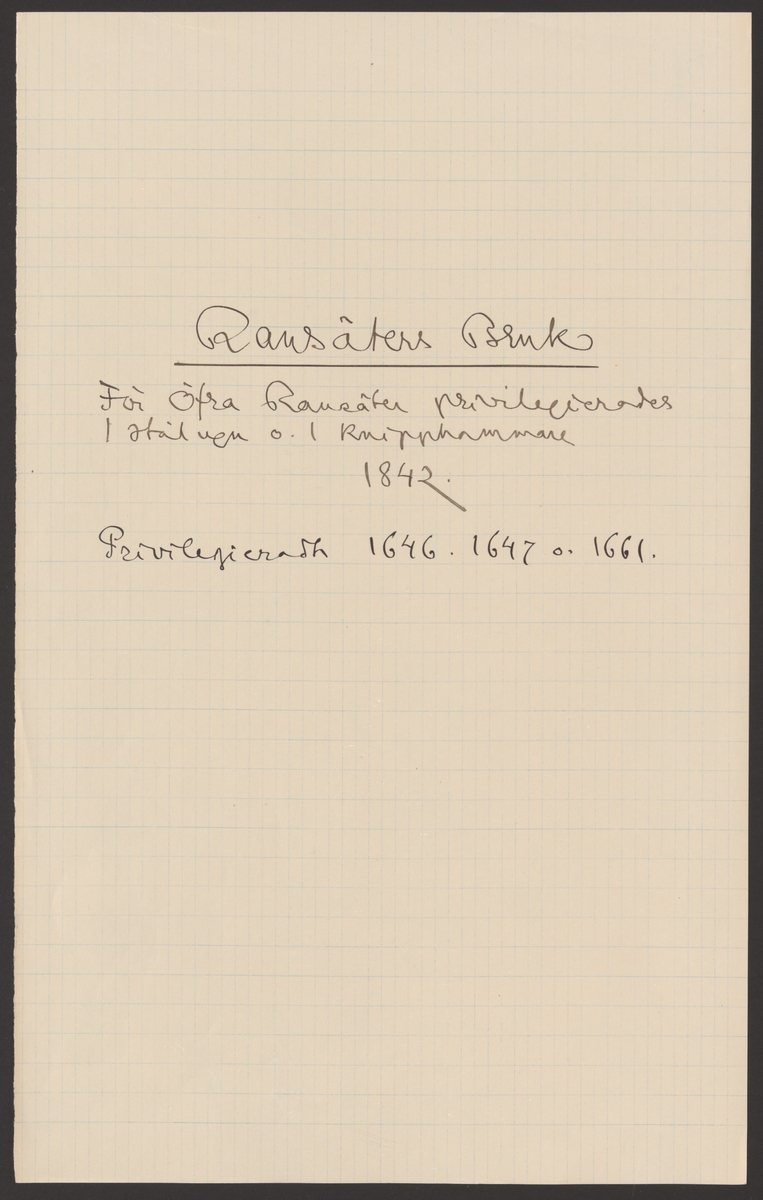 Ransäters Bruk
För Öfra Ransäter privilegierades
1 stålugn o. 1 knipphammare
1842.
Privilegieradt 1646. 1647 o. 1661.